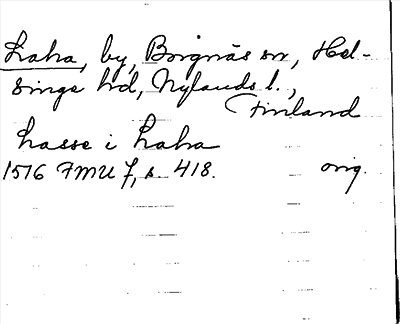 Laha, by, Borgnäs sn, Hel-
singe hd, Nylands l.,
Finland
Lasse i Laha
1516 FMU 7, s. 418. orig.